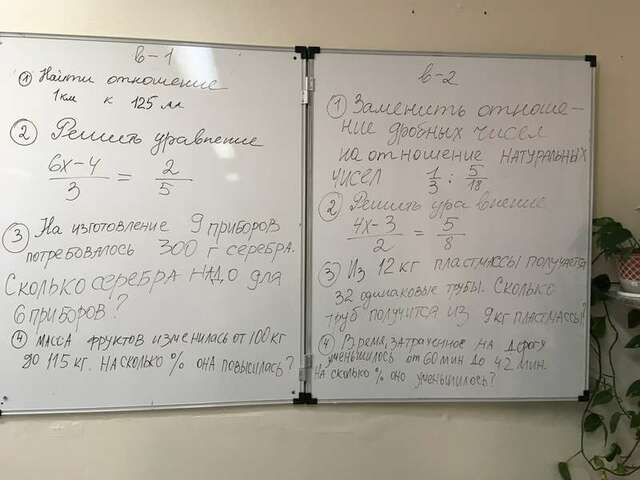 в-1
① Найти отношение
1км к 125 м
② Решить уравнение
6х-4/3 = 2/5
③ На изготовление 9 приборов
потребовалось 300 г серебра.
Сколько серебра надо для
6 приборов?
④ масса фруктов изменилась от 100кг
до 115 кг. на сколько % она повысилась?
в-2
① Заменить отноше-
ние дробных чисел
на отношение натуральных
чисел 1/3 : 5/18
② Решить уравнение
4х-3/2 = 5/8
③ Из 12 кг пластмассы получается
32 одинаковые трубы. Сколько
труб получится из 9 кг пластмассы?
④ Время, затраченное на дорогу
уменьшилось от 60 мин до 42 мин.
на сколько % оно уменьшилось?